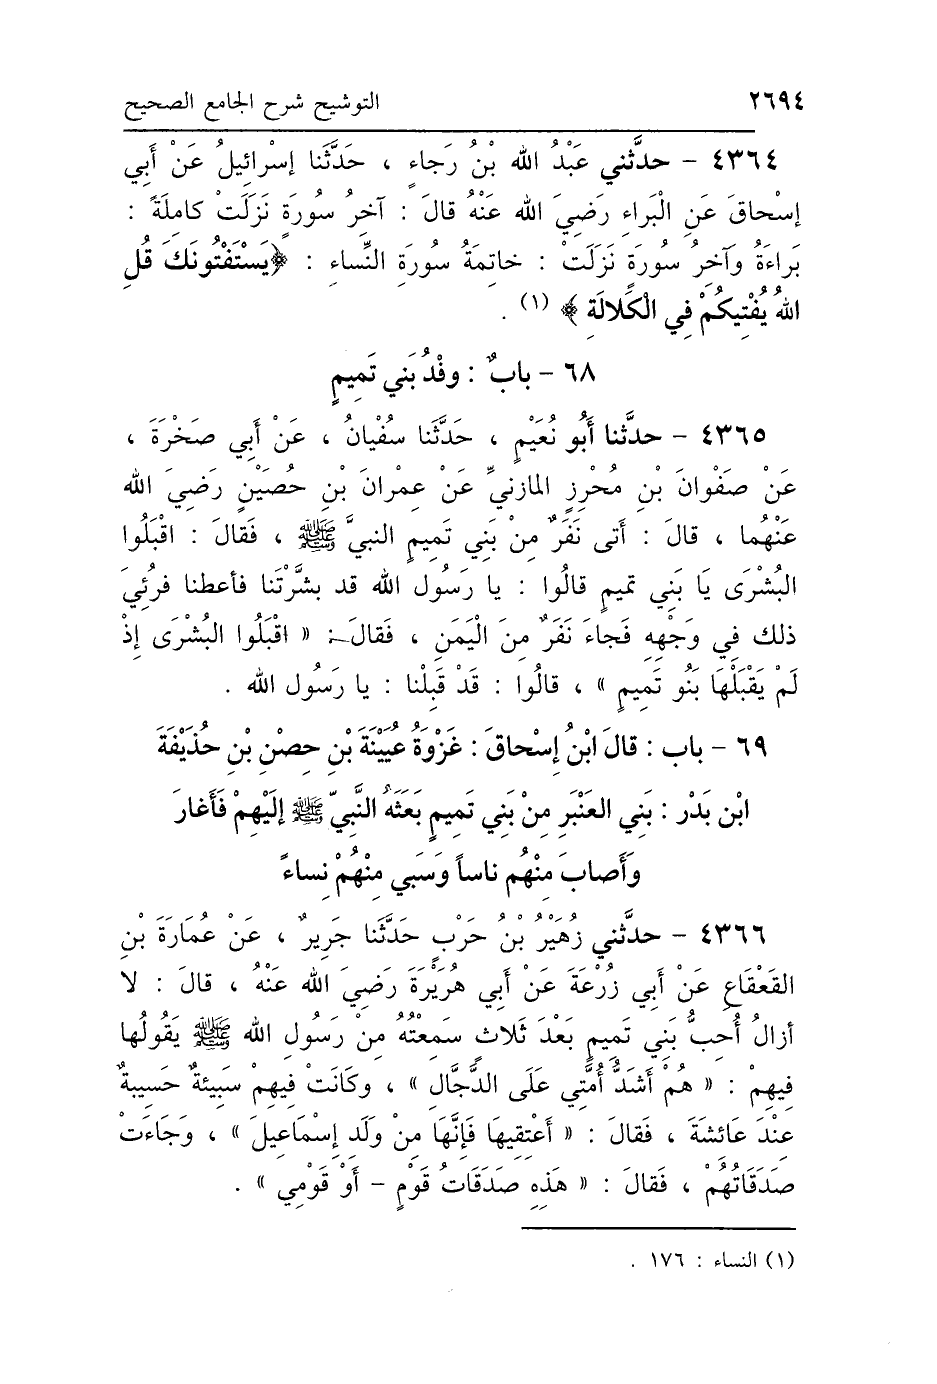 ٢٦٩٤ التوشيح شرح الجامع الصحيح
٤٣٦٤ - حدَّثني عَبْدُ الله بْنُ رَجاءٍ ، حَدَّثَنا إسْرائيلُ عَنْ أبي
إسْحاقَ عَنِ الْبَراءِ رَضِيَ الله عَنْهُ قالَ : آخِرُ سُورَةٍ نَزَلَتْ كامِلَةً :
بَراءَةُ وآخِرُ سُورَةٍ نَزَلَتْ : خاتِمَةُ سُورَةِ النِّساءِ : ﴿يَسْتَفْتُونَكَ قُلِ
اللهُ يُفْتِيكُمْ فِي الْكَلالَةِ﴾ (١) .
٦٨ - بابٌ : وفْدُ بَني تَميمٍ
٤٣٦٥ - حدَّثنا أبُو نُعَيْمٍ ، حَدَّثَنا سُفْيانُ ، عَنْ أبي صَخْرَةَ ،
عَنْ صَفْوانَ بْنِ مُحْرِزٍ المازنيِّ عَنْ عِمْرانَ بْنِ حُصَيْنٍ رَضِيَ الله
عَنْهُما ، قالَ : أتى نَفَرٌ مِنْ بَنِي تَميمٍ النبيَّ ﷺ ، فَقالَ : اقْبَلُوا
البُشْرَى يَا بَنِي تميمٍ قالُوا : يا رَسُول الله قد بشَّرْتَنا فأعطنا فرُئِيَ
ذلك في وَجْهِهِ فَجاءَ نَفَرٌ مِنَ الْيَمَنِ ، فَقالَ : « اقْبَلُوا البُشْرَى إذْ
لَمْ يَقْبَلْهَا بَنُو تَميمٍ » ، قالُوا : قَدْ قَبِلْنا : يا رَسُول الله .
٦٩ - باب : قالَ ابْنُ إسْحاقَ : غَزْوَةُ عُيَيْنَةَ بْنِ حِصْنِ بْنِ حُذَيْفَةَ
ابْنِ بَدْرٍ : بَنِي العَنْبَرِ مِنْ بَنِي تَميمٍ بَعَثَهُ النَّبِيّ ﷺ إلَيْهِمْ فَأَغارَ
وَأَصابَ مِنْهُم ناساً وَسَبي مِنْهُمْ نِساءً
٤٣٦٦ - حدَّثني زُهَيْرُ بْنُ حَرْبٍ حَدَّثَنا جَرِيرٌ ، عَنْ عُمَارَةَ بْنِ
القَعْقاعِ عَنْ أبي زُرْعَةَ عَنْ أبي هُرَيْرَةَ رَضِيَ الله عَنْهُ ، قالَ : لا
أزالُ أُحِبُّ بَنِي تَميمٍ بَعْدَ ثَلاثٍ سَمِعْتُهُ مِنْ رَسُولِ الله ﷺ يَقُولُها
فِيهِمْ : « هُمْ أشَدُّ أُمَّتي عَلَى الدَّجَّالِ » ، وكَانَتْ فِيهِمْ سَبِيئةٌ حَسِيبةٌ
عِنْدَ عَائِشَةَ ، فَقالَ : « أعْتِقِيها فَإنَّهَا مِنْ ولَدِ إسْماعيلَ » ، وَجَاءَتْ
صَدَقَاتُهُمْ ، فَقالَ : « هَذِهِ صَدَقَاتُ قَوْمٍ - أوْ قَوْمِي » .
(١) النساء : ١٧٦ .